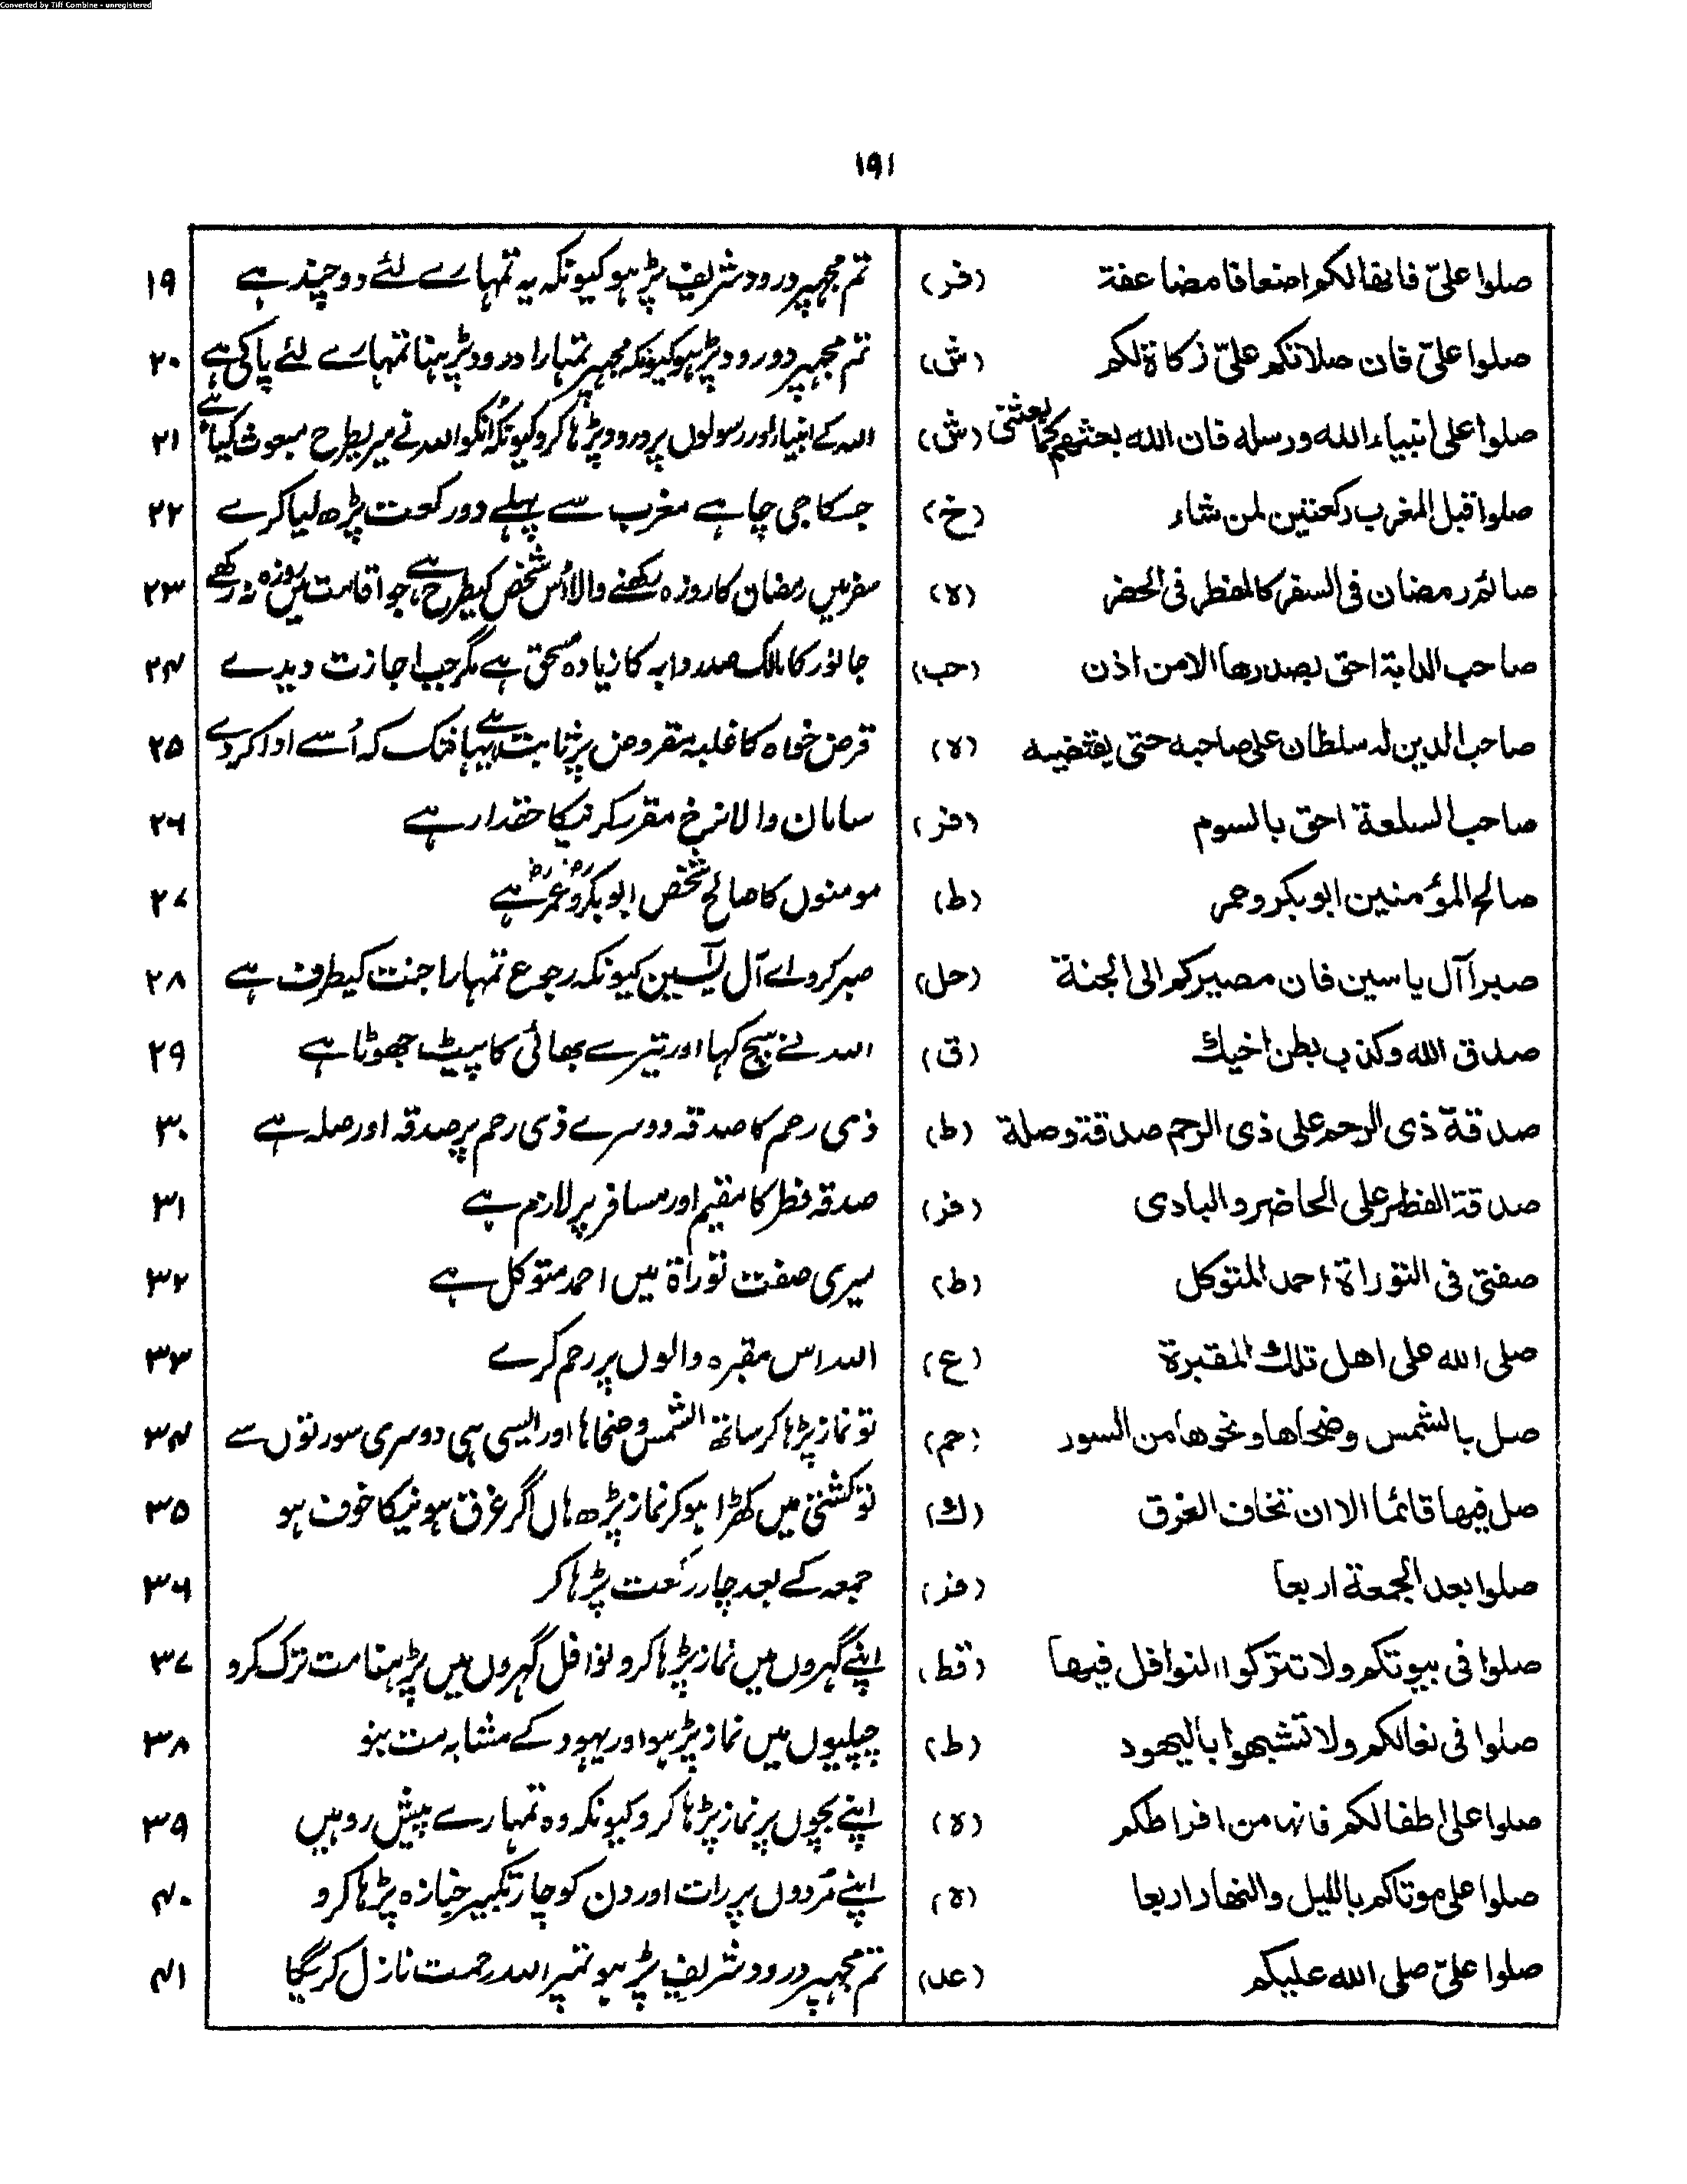 Converted by Tiff Combine - unregistered
۱۹۱
صلوا علیّ فانھا لکم اضعافا مضاعفة (فر) تم مجہپر درود شریف پڑہو کیونکہ یہ تمہارے لئے دوچند ہے ۱۹
صلوا علیّ فان صلاتکم علیّ زکاة لکم (ش) تم مجہپر دورود پڑہو کیونکہ مجہپر تمہارا درود پڑہنا تمہارے لئے پاکی ہے ۲۰
صلوا علی انبیاء الله ورسله فان الله بعثھم کما بعثنی (ش) اللہ کے انبیاء اور رسولوں پر درود پڑہا کرو کیونکہ اُنکو اللہ نے میریطرح مبعوث کیا ہے ۲۱
صلوا قبل المغرب رکعتین لمن شاء (خ) جسکا جی چاہے مغرب سے پہلے دو رکعت پڑھ لیا کرے ۲۲
صائم رمضان فی السفر کالمفطر فی الحضر (ہ) سفر میں رمضان کا روزہ رکھنے والا اُس شخص کیطرح ہے جو اقامت میں روزہ نہ رکھے ۲۳
صاحب الدابة احق بصدرها الا من اذن (حب) جانور کا مالک صدر دابہ کا زیادہ مستحق ہے مگر جب اجازت دیدے ۲۴
صاحب الدین له سلطان علی صاحبه حتی یقضیه (ہ) قرض خواہ کا غلبہ مقروض پر ثابت ہے یہانتک کہ اُسے ادا کردے ۲۵
صاحب السلعة احق بالسوم (فر) سامان والا نرخ مقرر کرنیکا حقدار ہے ۲۶
صالح المؤمنین ابوبکر وعمر (ط) مومنوں کا صالح شخص ابوبکرؓ وعمرؓ ہے ۲۷
صبرا آل یاسین فان مصیرکم الی الجنة (حل) صبر کرو اے آل یٰسین کیونکہ رجوع تمہارا جنت کیطرف ہے ۲۸
صدق الله وکذب بطن اخیك (ق) اللہ نے سچ کہا اور تیرے بھائی کا پیٹ جھوٹا ہے ۲۹
صدقة ذی الرحم علی ذی الرحم صدقة وصلة (ط) ذی رحم کا صدقہ دوسرے ذی رحم پر صدقہ اور صلہ ہے ۳۰
صدقة الفطر علی الحاضر والبادی (فر) صدقہ فطر کا مقیم اور مسافر پر لازم ہے ۳۱
صفتی فی التوراة احمد المتوکل (ط) میری صفت توراۃ میں احمد متوکل ہے ۳۲
صلی الله علی اهل تلك المقبرة (ع) اللہ اس مقبرہ والوں پر رحم کرے ۳۳
صل بالشمس وضحاها ونحوها من السور (حم) تو نماز پڑہا کر ساتھ الشمس وضحاہا اور ایسی ہی دوسری سورتوں سے ۳۴
صل فیھا قائما الا ان تخاف الغرق (ك) تو کشتی میں کھڑا ہو کر نماز پڑھ ہاں اگر غرق ہونیکا خوف ہو ۳۵
صلوا بعد الجمعة اربعا (فر) جمعہ کے بعد چار رکعت پڑہا کر ۳۶
صلوا فی بیوتکم ولا تترکوا النوافل فیھا (قط) اپنے گہروں میں نماز پڑہا کرو نوافل گہروں میں پڑہنا مت ترک کرو ۳۷
صلوا فی نعالکم ولا تشبھوا بالیھود (ط) چپلیوں میں نماز پڑہو اور یہود کے مشابہ مت بنو ۳۸
صلوا علی اطفالکم فانھا من افراطکم (ہ) اپنے بچوں پر نماز پڑہا کرو کیونکہ وہ تمہارے پیش رو ہیں ۳۹
صلوا علی موتاکم باللیل والنھار اربعا (ہ) اپنے مُردوں پر رات اور دن کو چار تکبیر جنازہ پڑہا کرو ۴۰
صلوا علیّ صلی الله علیکم (عد) تم مجہپر درود شریف پڑہو تمپر اللہ رحمت نازل کریگا ۴۱